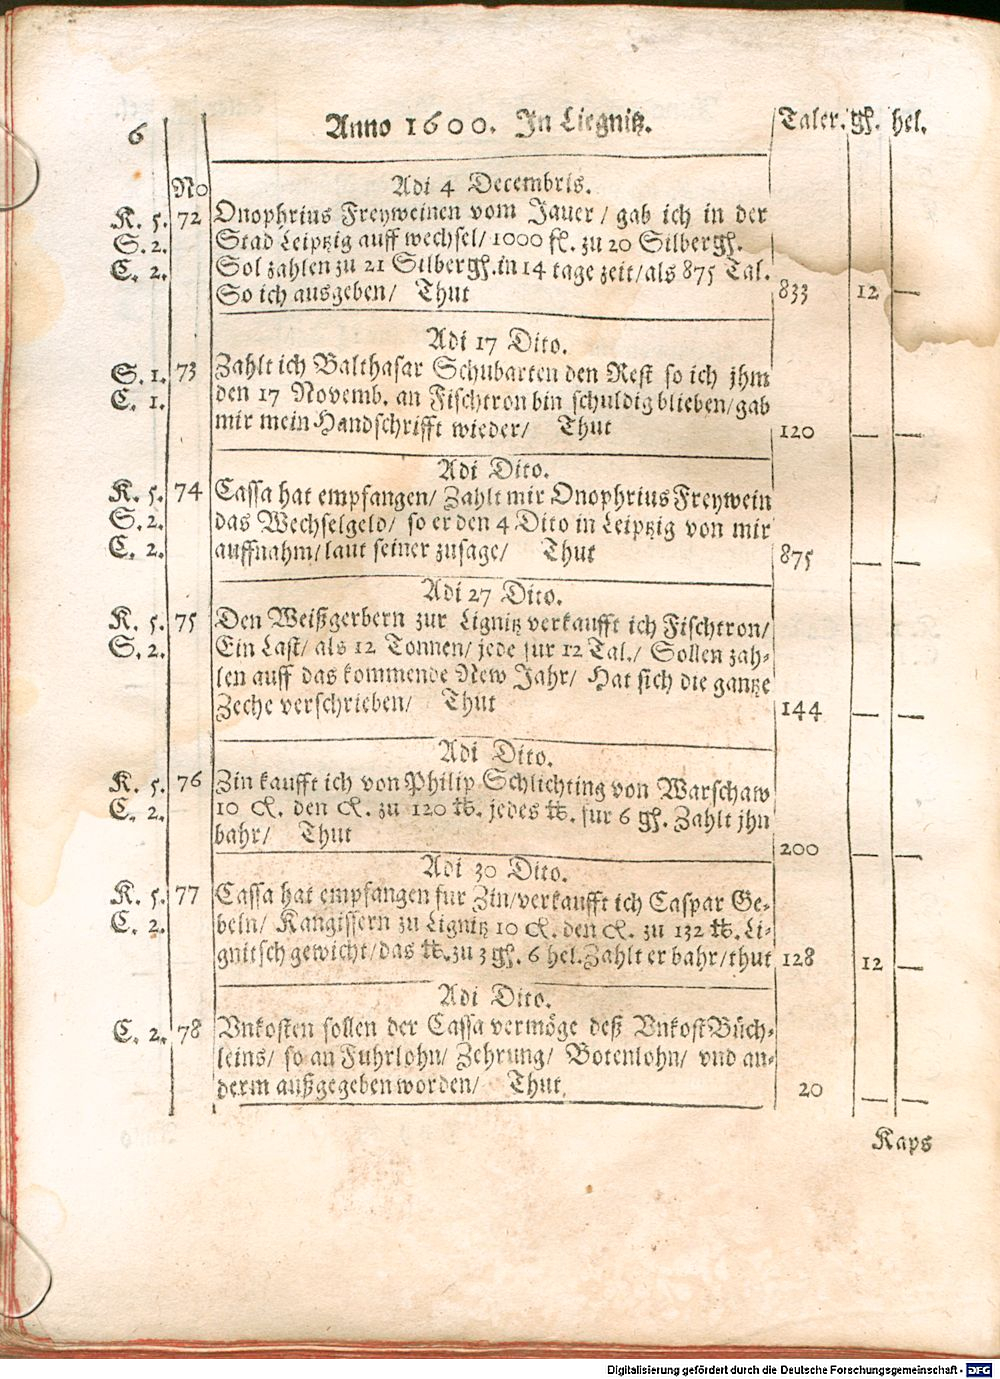 6 Anno 1600. In Liegnitz. Taler. gſ. hel.
No
Adi 4 Decembris.
K. 5. 72 Onophrius Freyweinen vom Jauer / gab ich in der
S. 2. Stad Leiptzig auff wechſel / 1000 fl. zu 20 Silbergſ.
C. 2. Sol zahlen zu 21 Silbergſ. in 14 tage zeit / als 875 Tal.
So ich ausgeben / Thut 833 12 —
Adi 17 Dito.
S. 1. 73 Zahlt ich Balthaſar Schubarten den Reſt ſo ich jhm
C. 1. den 17 Novemb. an Fiſchtron bin ſchuldig blieben / gab
mir mein Handſchrifft wieder / Thut 120 — —
Adi Dito.
K. 5. 74 Caſſa hat empfangen / Zahlt mir Onophrius Freywein
S. 2. das Wechſelgeld / ſo er den 4 Dito in Leiptzig von mir
C. 2. auffnahm / laut ſeiner zuſage / Thut 875 — —
Adi 27 Dito.
K. 5. 75 Den Weißgerbern zur Lignitz verkaufft ich Fiſchtron /
S. 2. Ein Laſt / als 12 Tonnen / jede fur 12 Tal. / Sollen zah⸗
len auff das kommende New Jahr / Hat ſich die gantze
Zeche verſchrieben / Thut 144 — —
Adi Dito.
K. 5. 76 Zin kaufft ich von Philip Schlichting von Warſchaw
C. 2. 10 Cl. den Cl. zu 120 ℔. jedes ℔. fur 6 gſ. Zahlt jhn
bahr / Thut 200 — —
Adi 30 Dito.
K. 5. 77 Caſſa hat empfangen fur Zin / verkaufft ich Caſpar Ge⸗
C. 2. beln / Kangiſſern zu Lignitz 10 Cl. den Cl. zu 132 ℔. Li⸗
gnitſch gewicht / das ℔. zu 3 gſ. 6 hel. Zahlt er bahr / thut 128 12 —
Adi Dito.
C. 2. 78 Vnkoſten ſollen der Caſſa vermöge deß Vnkoſt Büch⸗
leins / ſo an Fuhrlohn / Zehrung / Botenlohn / vnd an⸗
derm außgegeben worden / Thut, 20 — —
Kaps
Digitalisierung gefördert durch die Deutsche Forschungsgemeinschaft - DFG